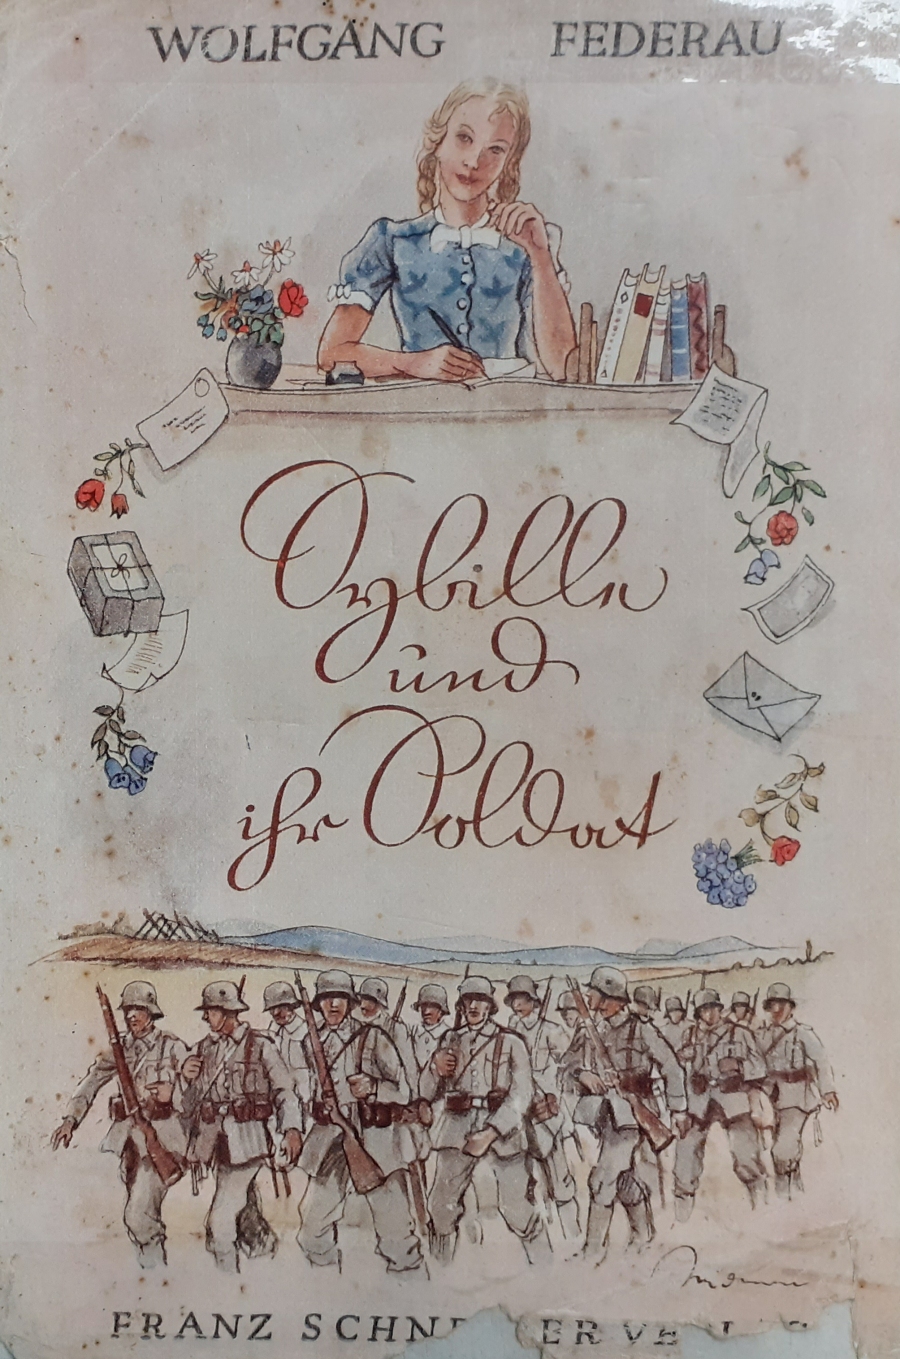 WOLFGANG FEDERAU
Sybille
und
ihr Soldat
FRANZ SCHN